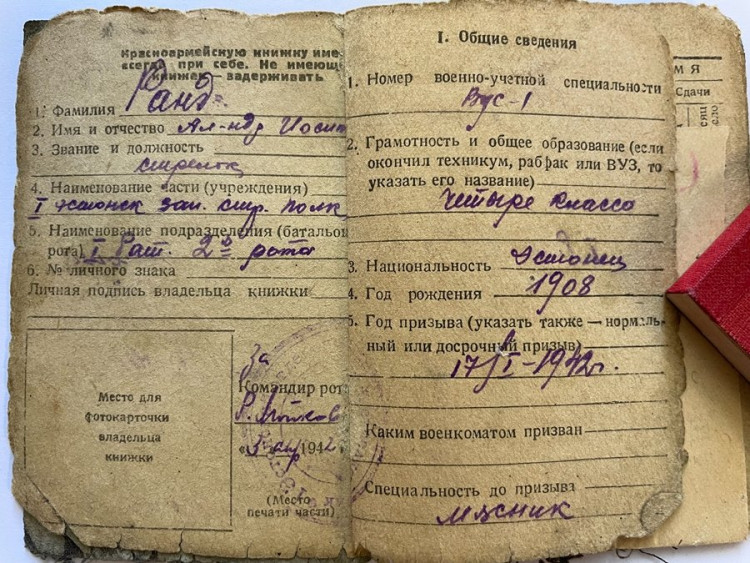 Красноармейскую книжку име
всегда при себе. Не имеющ
книжек — задерживать
1. Фамилия Ранд
2. Имя и отчество Ал-ндр Иосип
3. Звание и должность
стрелок
4. Наименование части (учреждения)
I эстонск зап. стр. полк
5. Наименование подразделения (батальон
рота) I Бат. 2я рота
6. № личного знака
Личная подпись владельца книжки
Место для
фотокарточки
владельца
книжки
За
Командир рот
1942
(Место
печати части)
I. Общие сведения
1. Номер военно-учетной специальности
Вус-1
2. Грамотность и общее образование (если
окончил техникум, рабфак или ВУЗ, то
указать его название)
Четыре класса
3. Национальность Эстонец
4. Год рождения 1908
5. Год призыва (указать также — нормаль-
ный или досрочный призыв)
1942г.
Каким военкоматом призван
Специальность до призыва
мясник
МЯ
Сдачи